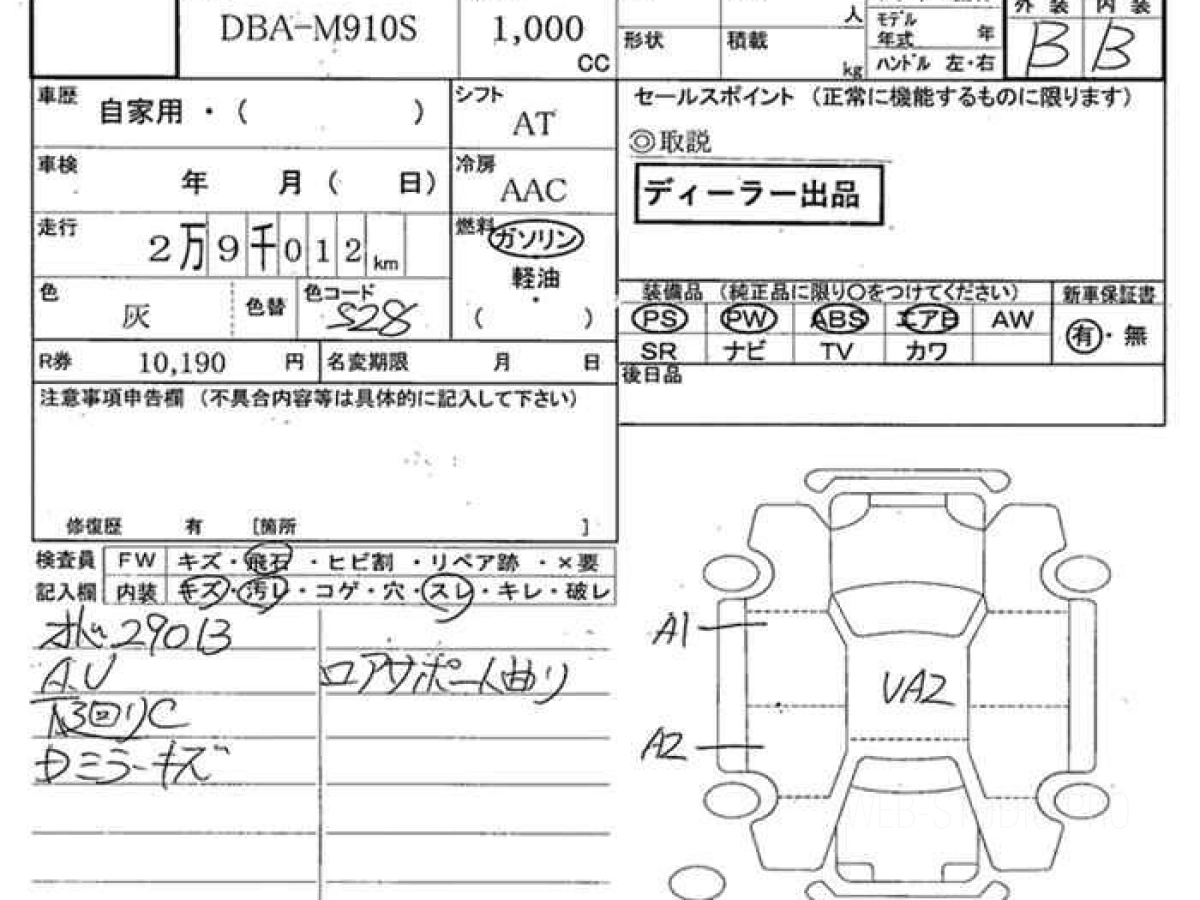 DBA-M910S 1,000 CC
人
形状 積載 kg
モデル年式 年
ハンドル 左・右
外装 内装
B B
車歴 自家用・( )
シフト AT
セールスポイント (正常に機能するものに限ります)
◎取説
ディーラー出品
車検 年 月 ( 日)
冷房 AAC
走行 2万9千012km
燃料 ガソリン
軽油
( )
色 灰 色替 色コード S28
装備品 (純正品に限り〇をつけてください) 新車保証書
PS PW ABS エアB AW
有・無
SR ナビ TV カワ
R券 10,190 円 名変期限 月 日
後日品
注意事項申告欄 (不具合内容等は具体的に記入して下さい)
修復歴 有 [箇所 ]
検査員 FW キズ・飛石・ヒビ割・リペア跡・×要
記入欄 内装 キズ・汚レ・コゲ・穴・スレ・キレ・破レ
29013
A.U
ロアサポート曲り
Dミラーキズ
A1
UA2
A2
WEB-STUDIO.PRO